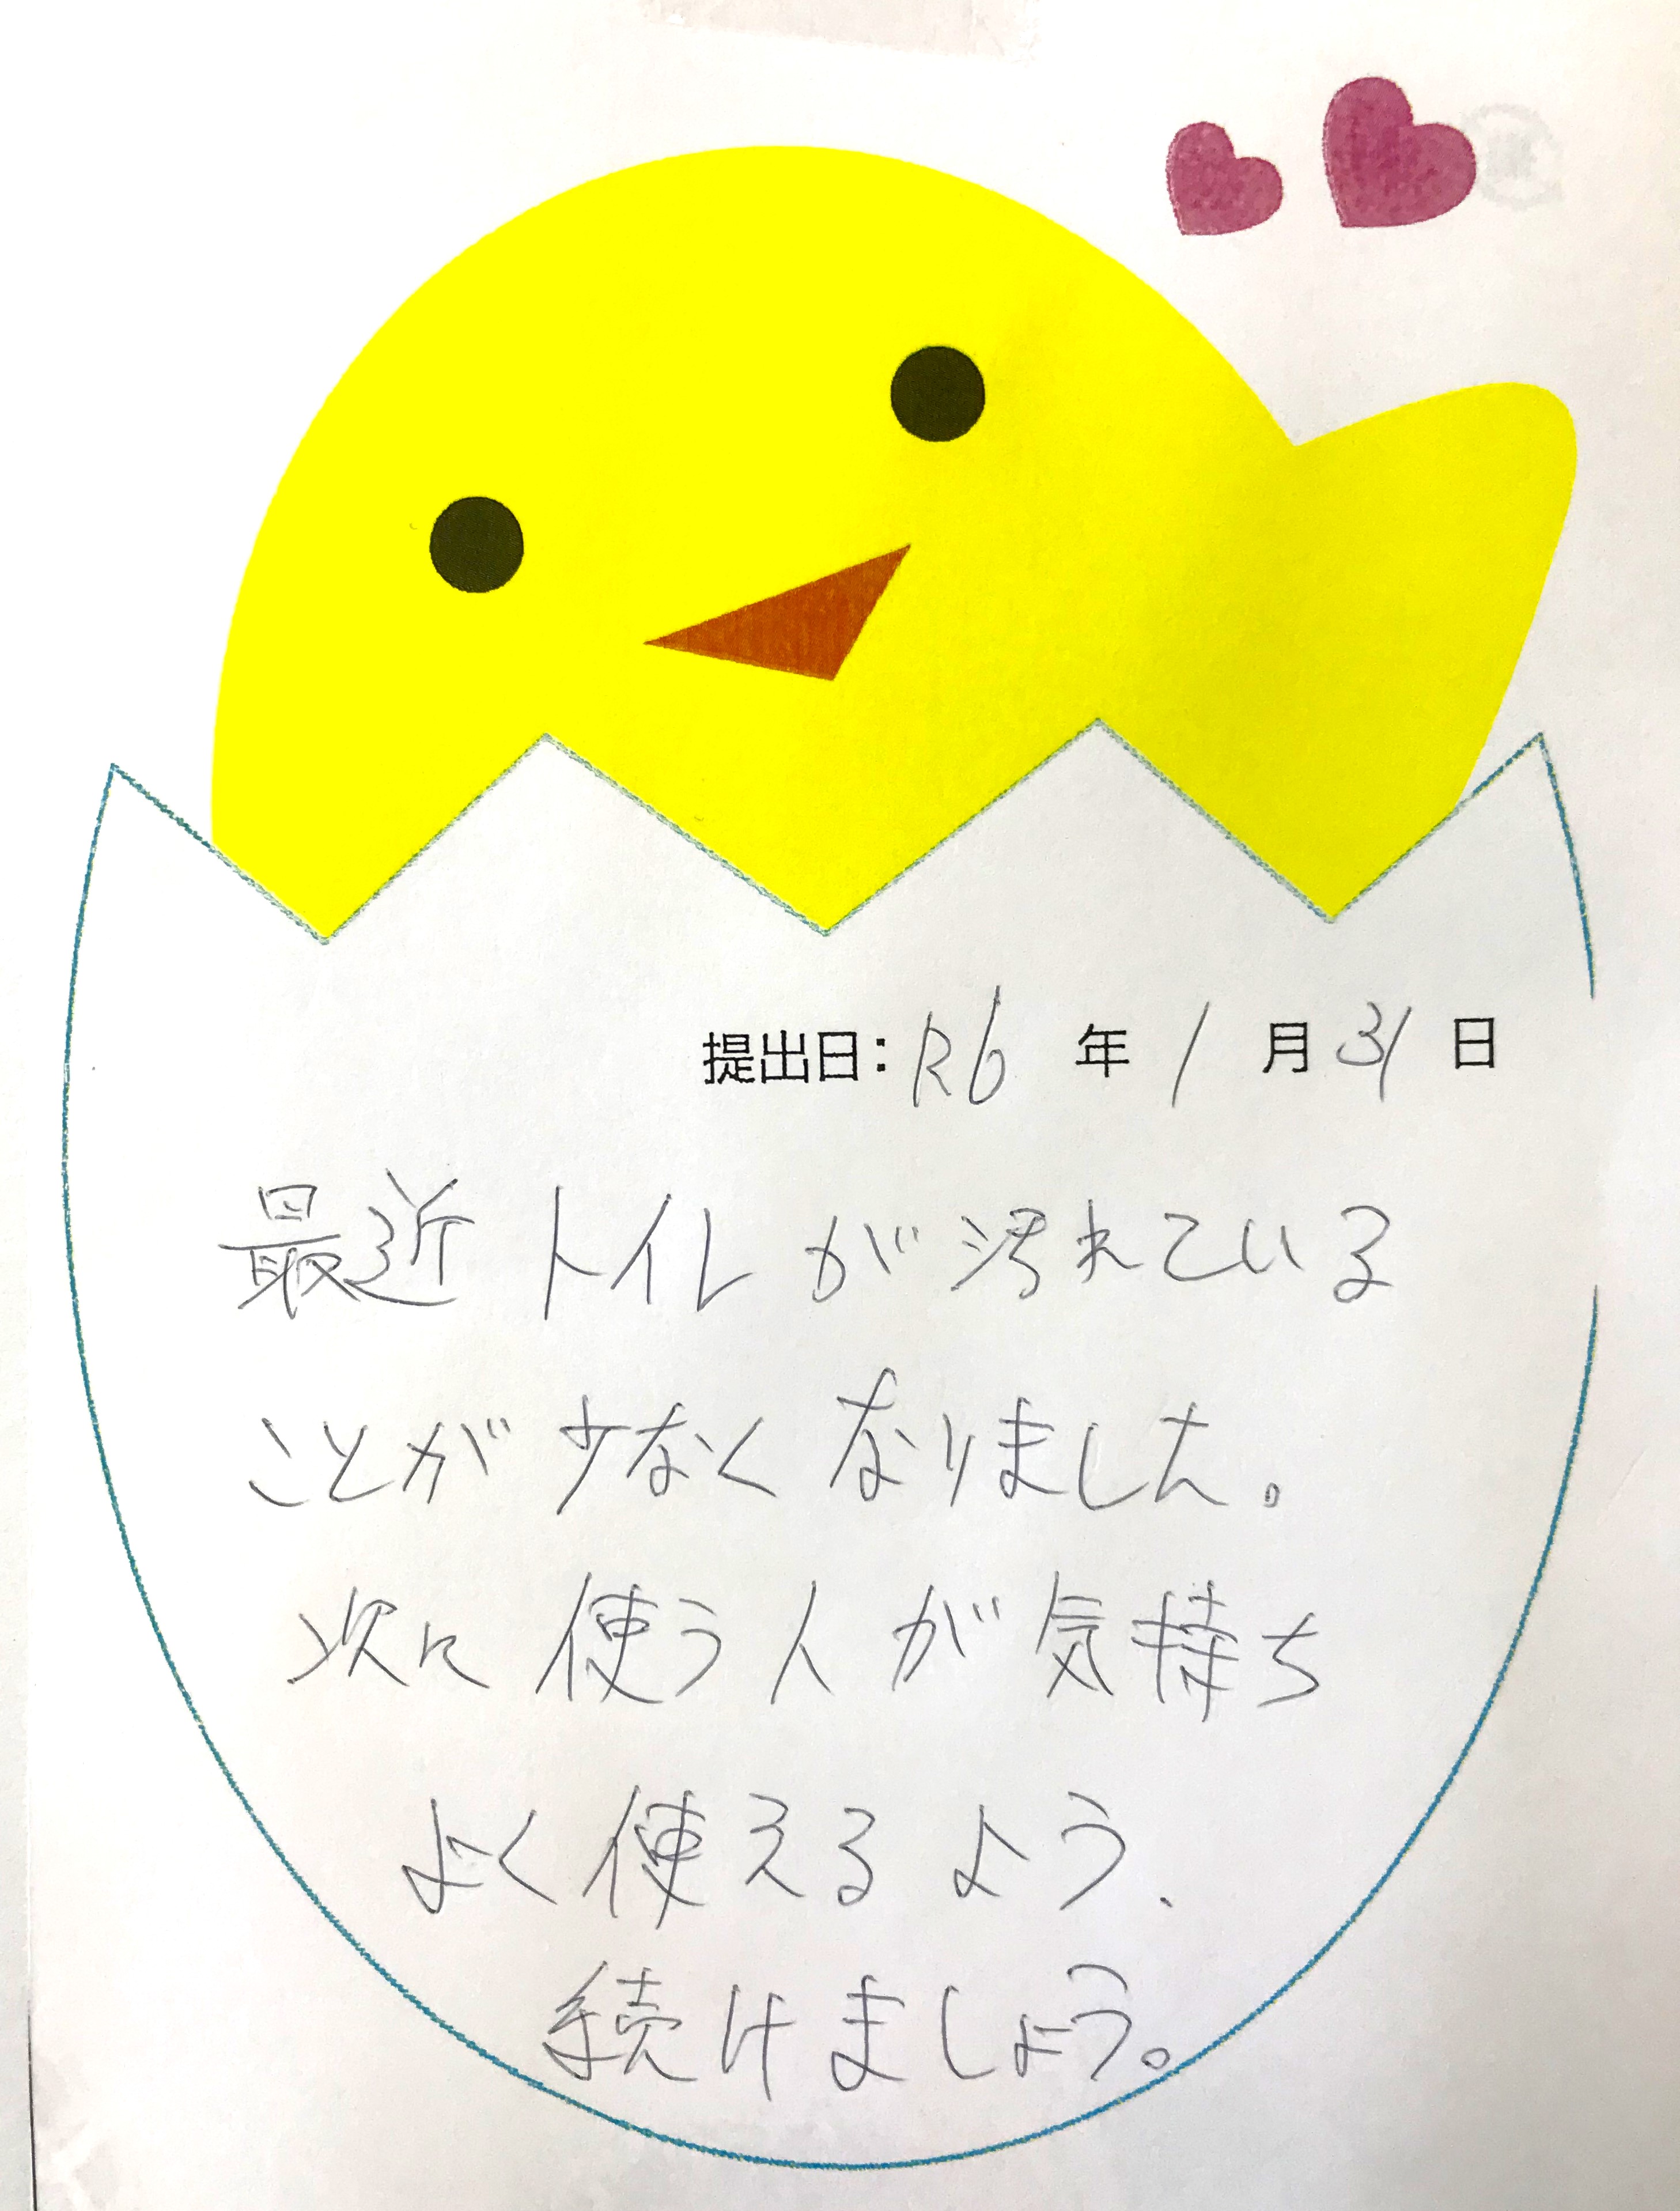 提出日：R6 年 1 月 31 日
最近トイレが汚れている
ことが少なくなりました。
次に使う人が気持ち
よく使えるよう、
続けましょう。